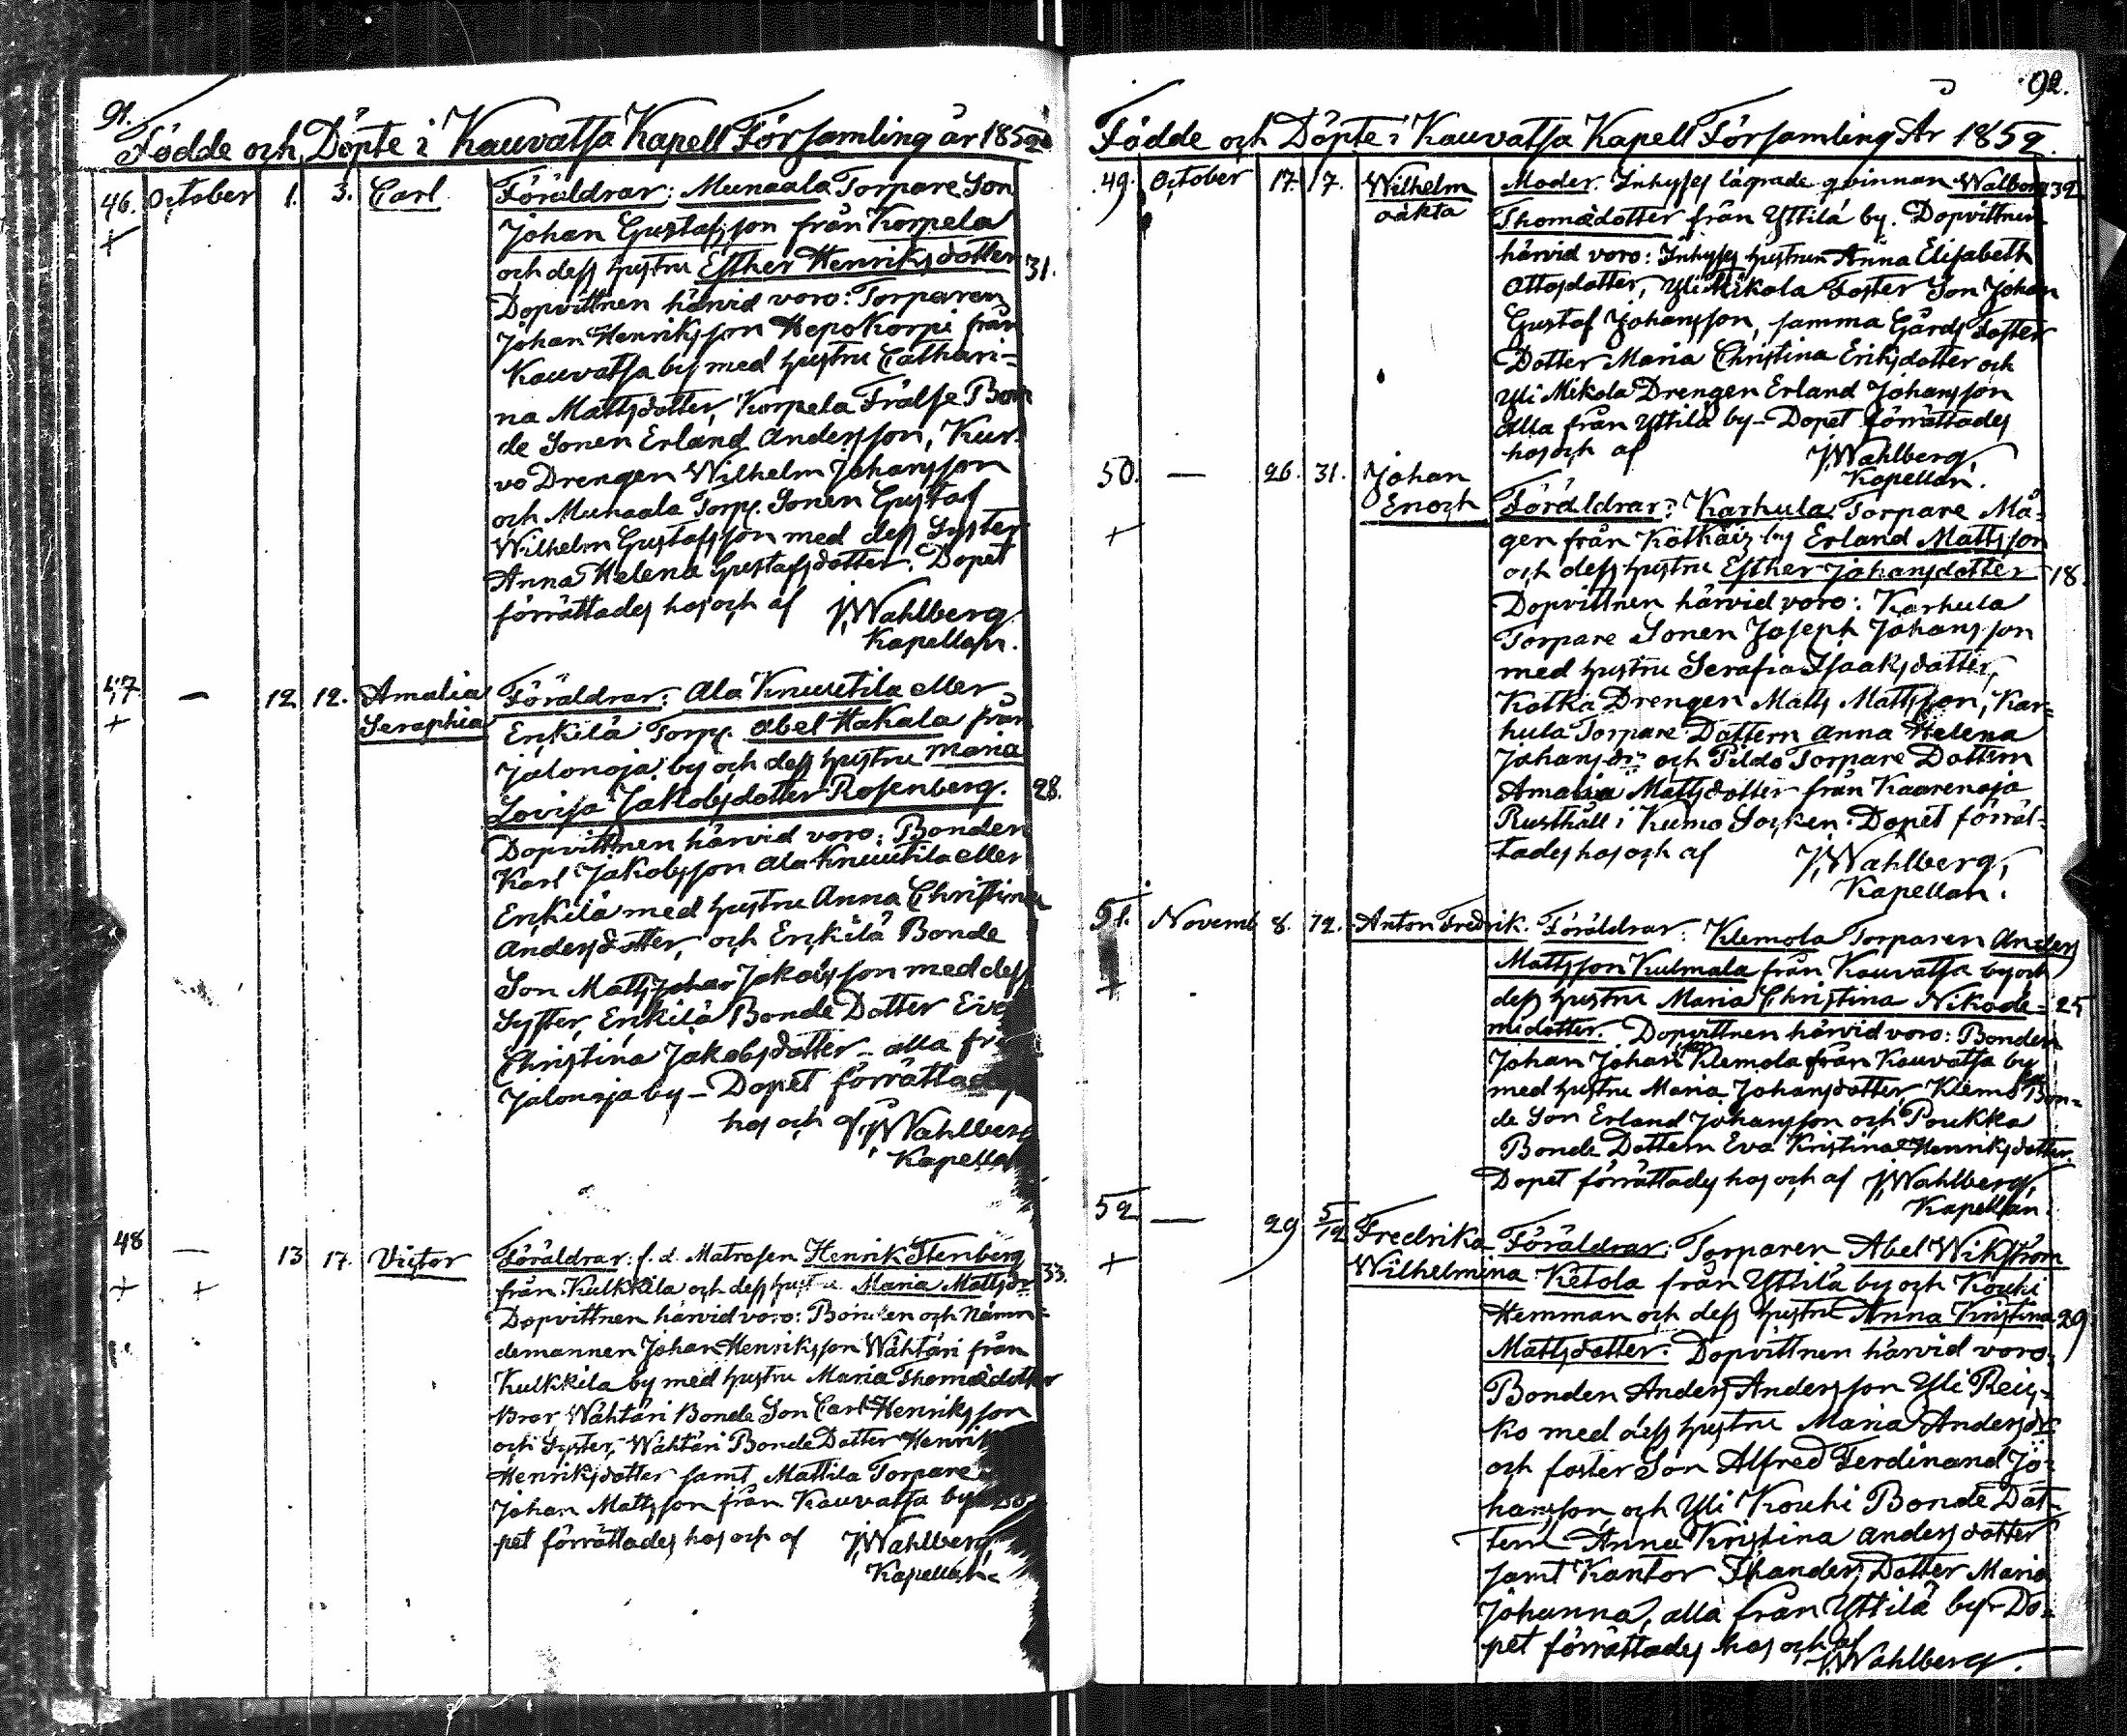 91.
Födde och Döpte i Kauvatsa Kapell Församling år 1852
46. October 1. 3. Carl Föräldrar: Munaala Torpare Son
+ Johan Gustafsson från Korpela
och dess hustru Esther Henriksdotter 31.
Dopvittnen härvid voro: Torparen
Johan Henriksson Hepokorpi från
Kauvatsa by med hustru Cathari-
na Mattsdotter, Korpela Frälse Bon
de Sonen Erland Andersson, Kur-
vo Drengen Wilhelm Johansson
och Munaala Torp. Sonen Gustaf
Wilhelm Gustafsson med dess Syster
Anna Helena Gustafsdotter. Dopet
förrättades has och af J. Wahlberg
Kapellan.
47. — 12 12. Amalia Föräldrar: Ala Knuutila eller
+ Seraphia Enkilä Torp. Abel Hakala från
Jalonoja by och dess hustru Maria
Lovisa Jakobsdotter Rosenberg. 28.
Dopvittnen härvid voro: Bonden
Karl Jakobsson Ala Knuutila eller
Enkilä med hustru Anna Christina
Andersdotter, och Enkilä Bonde
Son Matts Johan Jakobsson med dess
Syster, Enkilä Bonde Dotter Eva
Christina Jakobsdotter alla fr
Jalonoja by – Dopet förrättades
has och af J. Wahlberg
Kapellan
48 — 13 17. Victor Föräldrar: f. d. Matrosen Henrik Stenberg
+ + från Kulkkila och dess hustru Maria Mattsdr 33.
Dopvittnen härvid voro: Bonden och Nämn-
demannen Johan Henriksson Wähtäri från
Kulkkila by med hustru Maria Thomædotter
Bror Wähtäri Bonde Son Carl Henriksson
och Syster, Wähtäri Bonde Dotter Henrik
Henriksdotter samt Mattila Torpare
Johan Mattsson från Kauvatsa by Do
pet förrättades has och af J. Wahlberg
Kapellan.
92.
Födde och Döpte i Kauvatsa Kapell Församling År 1852.
49. October 17. 17. Wilhelm Moder. Inhyses lägrade qvinnan Walborg 32
oäkta Thomædotter från Yttilä by. Dopvittnen
härvid voro: Inhyses hustrun Anna Elisabeth
Ottosdotter, Yli Mikola Foster Son Johan
Gustaf Johansson, samma Gårds Foster
Dotter Maria Christina Eriksdotter och
Yli Mikola Drengen Erland Johansson
alla från Yttilä by – Dopet förrättades
has och af J. Wahlberg,
Kapellan.
50. — 26. 31. Johan
Enoch Föräldrar: Karhula Torpare Må-
+ gen från Kotkais by Erland Mattsson
och dess hustru Esther Johansdotter 18.
Dopvittnen härvid voro: Karhula
Torpare Sonen Joseph Johansson
med hustru Serafia Isaaksdotter,
Kotka Drengen Matts Mattsson, Kar-
hula Torpare Dottern Anna Helena
Johansdr och Pildo Torpare Dottern
Amalia Mattsdotter från Kaarenoja
Rusthåll i Kumo Socken. Dopet förrät-
tades has och af J. Wahlberg,
Kapellan.
51. Novemb 8. 12. Anton Fredrik. Föräldrar: Klemola Torparen Anders
+ Mattsson Kulmala från Kauvatsa by och
dess hustru Maria Christina Nikode- 25
midotter. Dopvittnen härvid voro: Bonden
Johan Johansson Klemola från Kauvatsa by
med hustru Maria Johansdotter, Klemola Bon-
de Son Erland Johansson och Poukka
Bonde Dottern Eva Kristina Henriksdotter.
Dopet förrättades has och af J. Wahlberg,
Kapellan.
52 — 29 5/12 Fredrika Föräldrar: Torparen Abel Wikström
+ Wilhelmina Ketola från Yttilä by och Kouhi
Hemman och dess hustru Anna Kristina 29
Mattsdotter. Dopvittnen härvid voro:
Bonden Anders Andersson Yli Reis-
ko med dess hustru Maria Andersdr
och foster Son Alfred Ferdinand Jo-
hansson och Yli Kouhi Bonde Dot-
tern Anna Kristina Andersdotter
samt Kantor Thanders Dotter Maria
Johanna, alla från Yttilä by. Do-
pet förrättades has och af
J. Wahlberg.